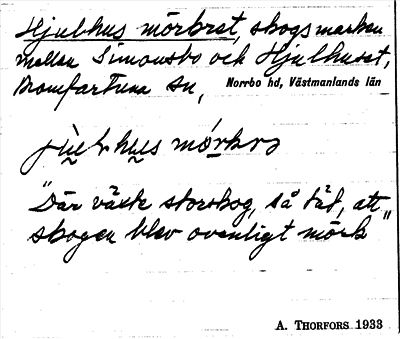 Hjulhus mörkret, skogsmarken
mellan Simonsbo och Hjulhuset,
Romfartuna sn, Norrbo hd, Västmanlands län
"Där växte storskog, så tät, att
skogen blev ovanligt mörk"
A. THORFORS 1933